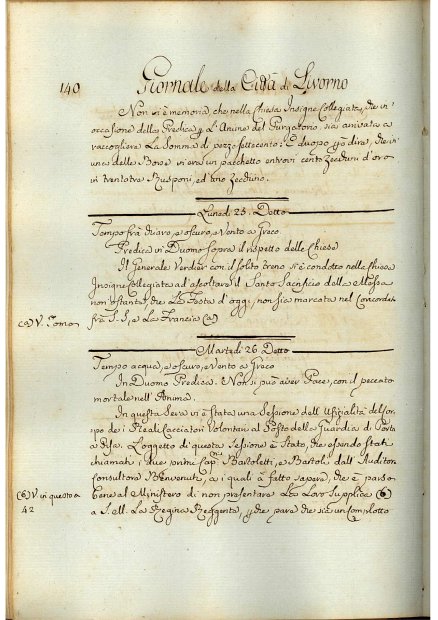 140 Giornale della Città di Livorno
Non vi è memoria che nella Chiesa Insigne Collegiata, che in
occasione della Predica p l'Anime del Purgatorio sia arrivata a
raccogliere la somma di pezze settecento: È duopo però dire, che in
una delle Borse vi era un pacchetto entrovi cento Zecchini d'oro
in trentatre Rusponi, ed uno Zecchino.
Lunedì 25. Detto
Tempo frà chiaro, e oscuro, e Vento a Greco
Predica in Duomo sopra il rispetto delle Chiese
Il Generale Verdier con il solito treno si è condotto nella Chiesa
Insigne Collegiata ad ascoltare il Santo Sacrifico della Messa
non ostante, che la Festa d'oggi, non sia marcata nel Concordato
(a) V. Tomo
frà S. S., e la Francia (a)
Martedì 26. Detto
Tempo acqua, e oscuro, e Vento a Greco
In Duomo Predica. Non si può aver Pace, con il peccato
mortale nell'Anima.
In questa Sera vi è stata una Sessione dell'Ufizialità del Cor-
po de i Reali Cacciatori Volontari al Posto della Guardia di Porta
a Pisa. L'oggetto di questa Sessione è stato, che essendo stati
chiamati i due primi Capni. Bartoletti, e Bartoli dall'Auditor
Consultore Benvenuti, a i quali à fatto sapere, che è parso
(6) V. in questo a
42
bene al Ministero di non presentare la loro Supplica (6)
a S. M. la Regina Reggente, p che pare che sia un complotto